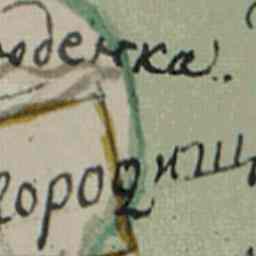 юденка.
городищ